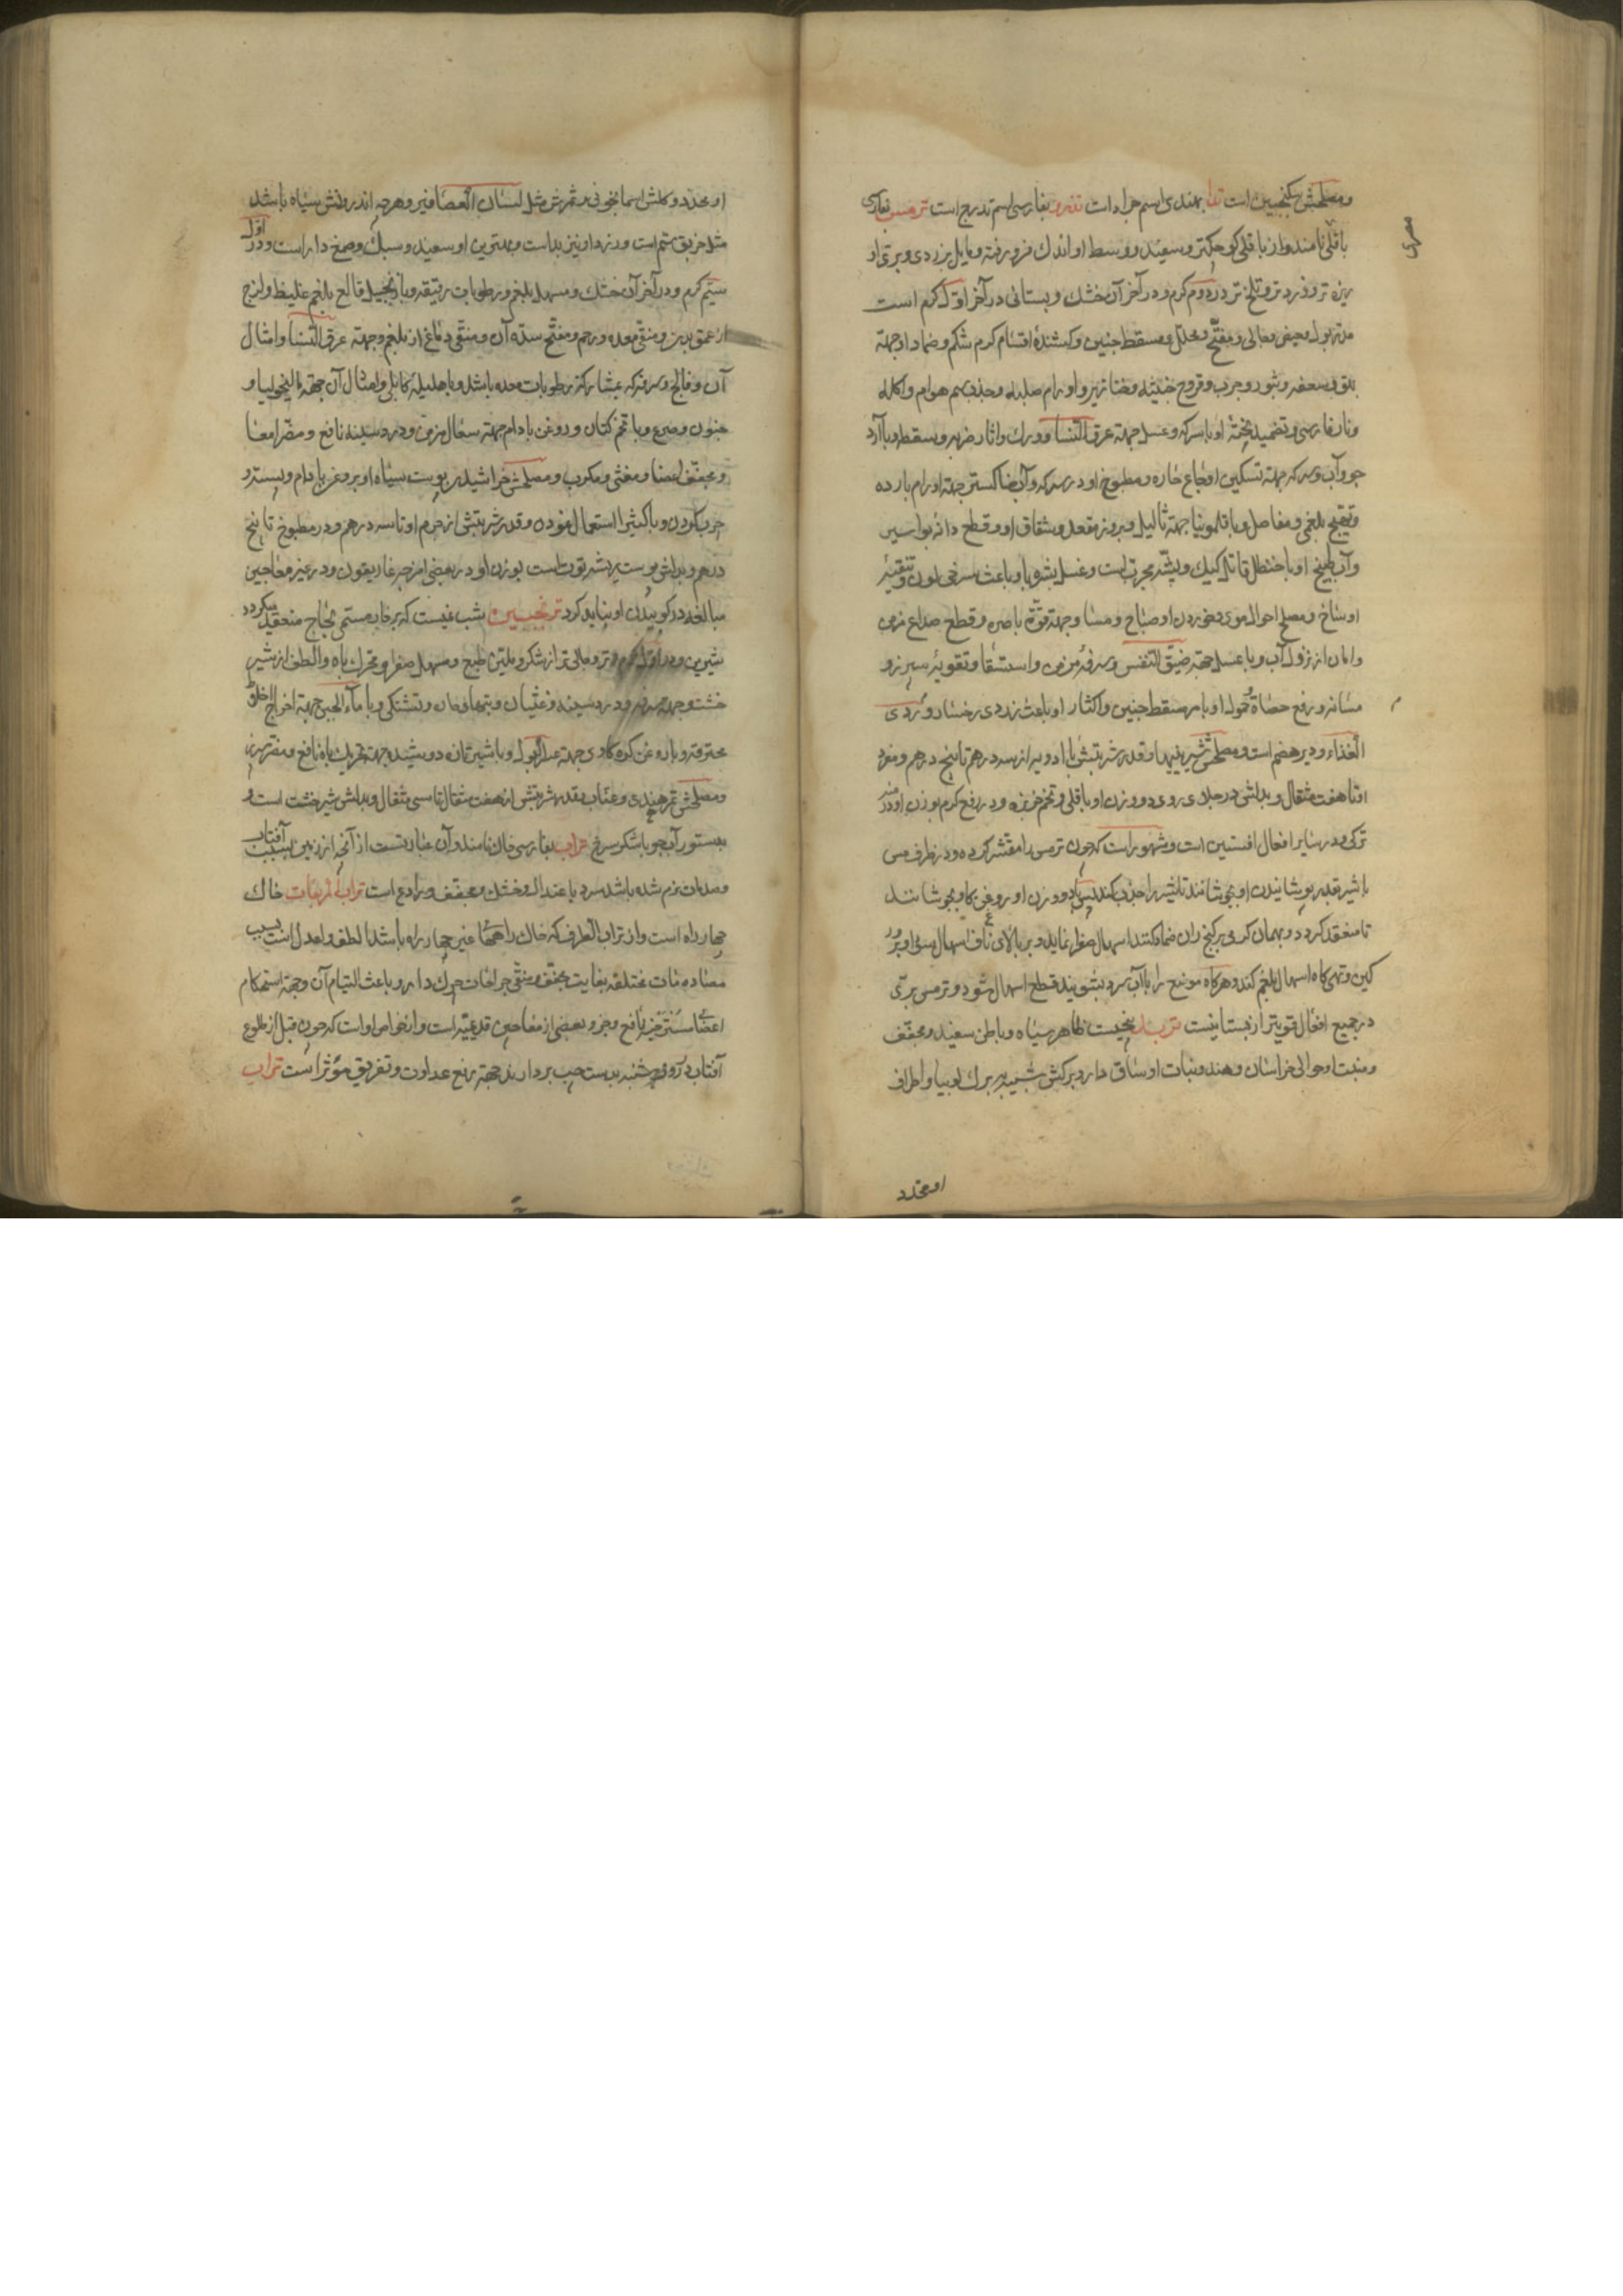 ومصلحش سکنجبین است تدا بهندی اسم جراد است تذرو بفارسی اسم تدرج است ترمس بفارسی
باقلی نامند واز باقلی کوچکتر وسفید ووسط او اندک فرو رفته ومایل بزردی وبری او
ریزه تر وزرد تر وتلخ تر در دوم گرم ودر آخر آن خشک وبستانی در آخر اول گرم است
مدر بول وحیض وجالی ومفتح ومحلل ومسقط جنین وکشندۀ اقسام کرم شکم وضماد او جهة
بهق وسعفه وبثور وجرب وقروح خبیثه وخنازیر واورام صلبه وجذب سم هوام واکله
ونار فارسی وتضمید پختۀ او با سرکه وعسل جهة عرق النسا وورک واثار ضربه وسقطه وبا آرد
جو وآب وسرکه جهة تسکین اوجاع حاره ومطبوخ او در سرکه وآب خاکستر جهة اورام بارده
وتهیج بلغمی ومفاصل وبا قلمونیا جهة ثالیل وبروز مقعد وشقاق او وقطع دانه بواسیر
وآب طبیخ او با حنظل قاتل کیک وپشه مجرب است وغسل بشره باو باعث سرخی لون وتنقیۀ
اوساخ ومصلح احوال موی وخوردن او صباح ومسا وجهة قوة باصره وقطع صداع مزمن
وامان از نزول آب وبا عسل جهة ضیق النفس وسرفۀ مزمن واستسقا وتقویۀ سپرز و
مثانه ورفع حصاة وحمول او با مر مسقط جنین واکثار او باعث زردی رخسار وردی
الغذاء ودیر هضم است ومصلحش شیرینیها وقدر شربتش با ادویه از سه درهم تا پنج درهم ومفرد
او تا هفت مثقال وبدلش در جلای روی دو وزن او باقلی وتخم خربزه ودر رفع کرم بوزن او درمنه
ترکی ودر سایر افعال افسنتین است ومشهور است که چون ترمس را مقشر کرده ودر ظرف مس
با شیر بقدر پوشانیدن او بجوشانند تا شیر را جذب کند پس با دو وزن او روغن گاو بجوشانند
تا منعقد گردد وبهمان گرمی بر کنج ران ضماد کنند اسهال صفرا نماید وبر بالای ناف اسهال سودا وبرور
کین وتهی گاه اسهال بلغم کند وهرگاه موضع را با آب سرد بشویند قطع اسهال شود وترمس بری
در جمیع افعال قویتر از بستانیست تربد بیخیست ظاهر سیاه وباطن سفید ومجفف
ومنبت او حوالی خراسان وهند ونبات او ساق دارد وبرگش شبیه ببرگ لوبیا واطراف
او محدد
مصری
او محدد وگلش اسمانجونی وثمرش مثل لسان العصافیر وهرچه اندرونش سیاه باشد
مثل خربق سم است وزرد او نیز بد است وبهترین او سفید وسبک وصمغ دار است ودر اول
سیم گرم ودر آخر آن خشک ومسهل بلغم ورطوبات رقیقه وبا زنجبیل قالع بلغم غلیظ ولزج
از عمق بدن ومنقی معده ورحم ومفتح سده آن ومنقی دماغ از بلغم وجهة عرق النسا وامثال
آن وفالج وسرفه که بمشارکت رطوبات معده باشد وبا هلیله کابلی وامثال آن جهة مالیخولیا و
جنون وصرع وبا تخم کتان وروغن بادام جهة سعال مزمن ودرد سینه نافع ومضر امعا
ومجفف اعضا ومغثی ومکرب ومصلحش خراشیدن پوست سیاه او بروغن بادام وپسته
چرب کردن وبا کثیرا استعمال نمودن وقدر شربتش از جرم او تا سه درهم ودر مطبوخ تا پنج
درهم وبدلش پوست بیشه توت است بوزن او در بعضی امزجه غاریقون ودر غیر معاجین
مبالغه در کوبیدن او نباید کرد ترنجبین شبنمیست که بر خار مسمی بحاج منعقد میگردد
شیرین ودر اول گرم وتر وجالی تر از شکر وملین طبع ومسهل صفرا ومحرک باه والطف از شیر
خشت وجهة سرفه ودرد سینه وغثیان وتبهای حار وتشنگی وبا ماء الجبن جهة اخراج اخلاط
محترقه وبا روغن گوه گاوی جهة عسر البول وبا شیر تازه دوشیده جهة تحریک باه نافع ومضر سپرز
ومصلحش تمر هندی وعناب وقدر شربتش از هفت مثقال تا سی مثقال وبدلش شیر خشت است و
بدستور آب جو با شکر سرخ تراب بفارسی خاک نامند وآن عبارتست از آنچه از زمین بسبب آفتاب
وصدمات نرم شده باشد سرد با عتدال وخشک ومجفف ورادع است تراب المربعات خاک
چهار راه است واز تراب الطرق که خاک راههای غیر چهار راه باشد الطف واعدل است بسبب
مصادمات مختلفه بغایت مجفف ومنقی جراحات چرک دار وباعث التیام آن وجهة استحکام
اعضای مسترخیه نافع وجزو بعضی از معاجین قدیمیه است واز خواص او است که چون قبل از طلوع
آفتاب در روز شنبه بدست چپ بردارند جهة رفع عداوت وتفریق مؤثر است تراب